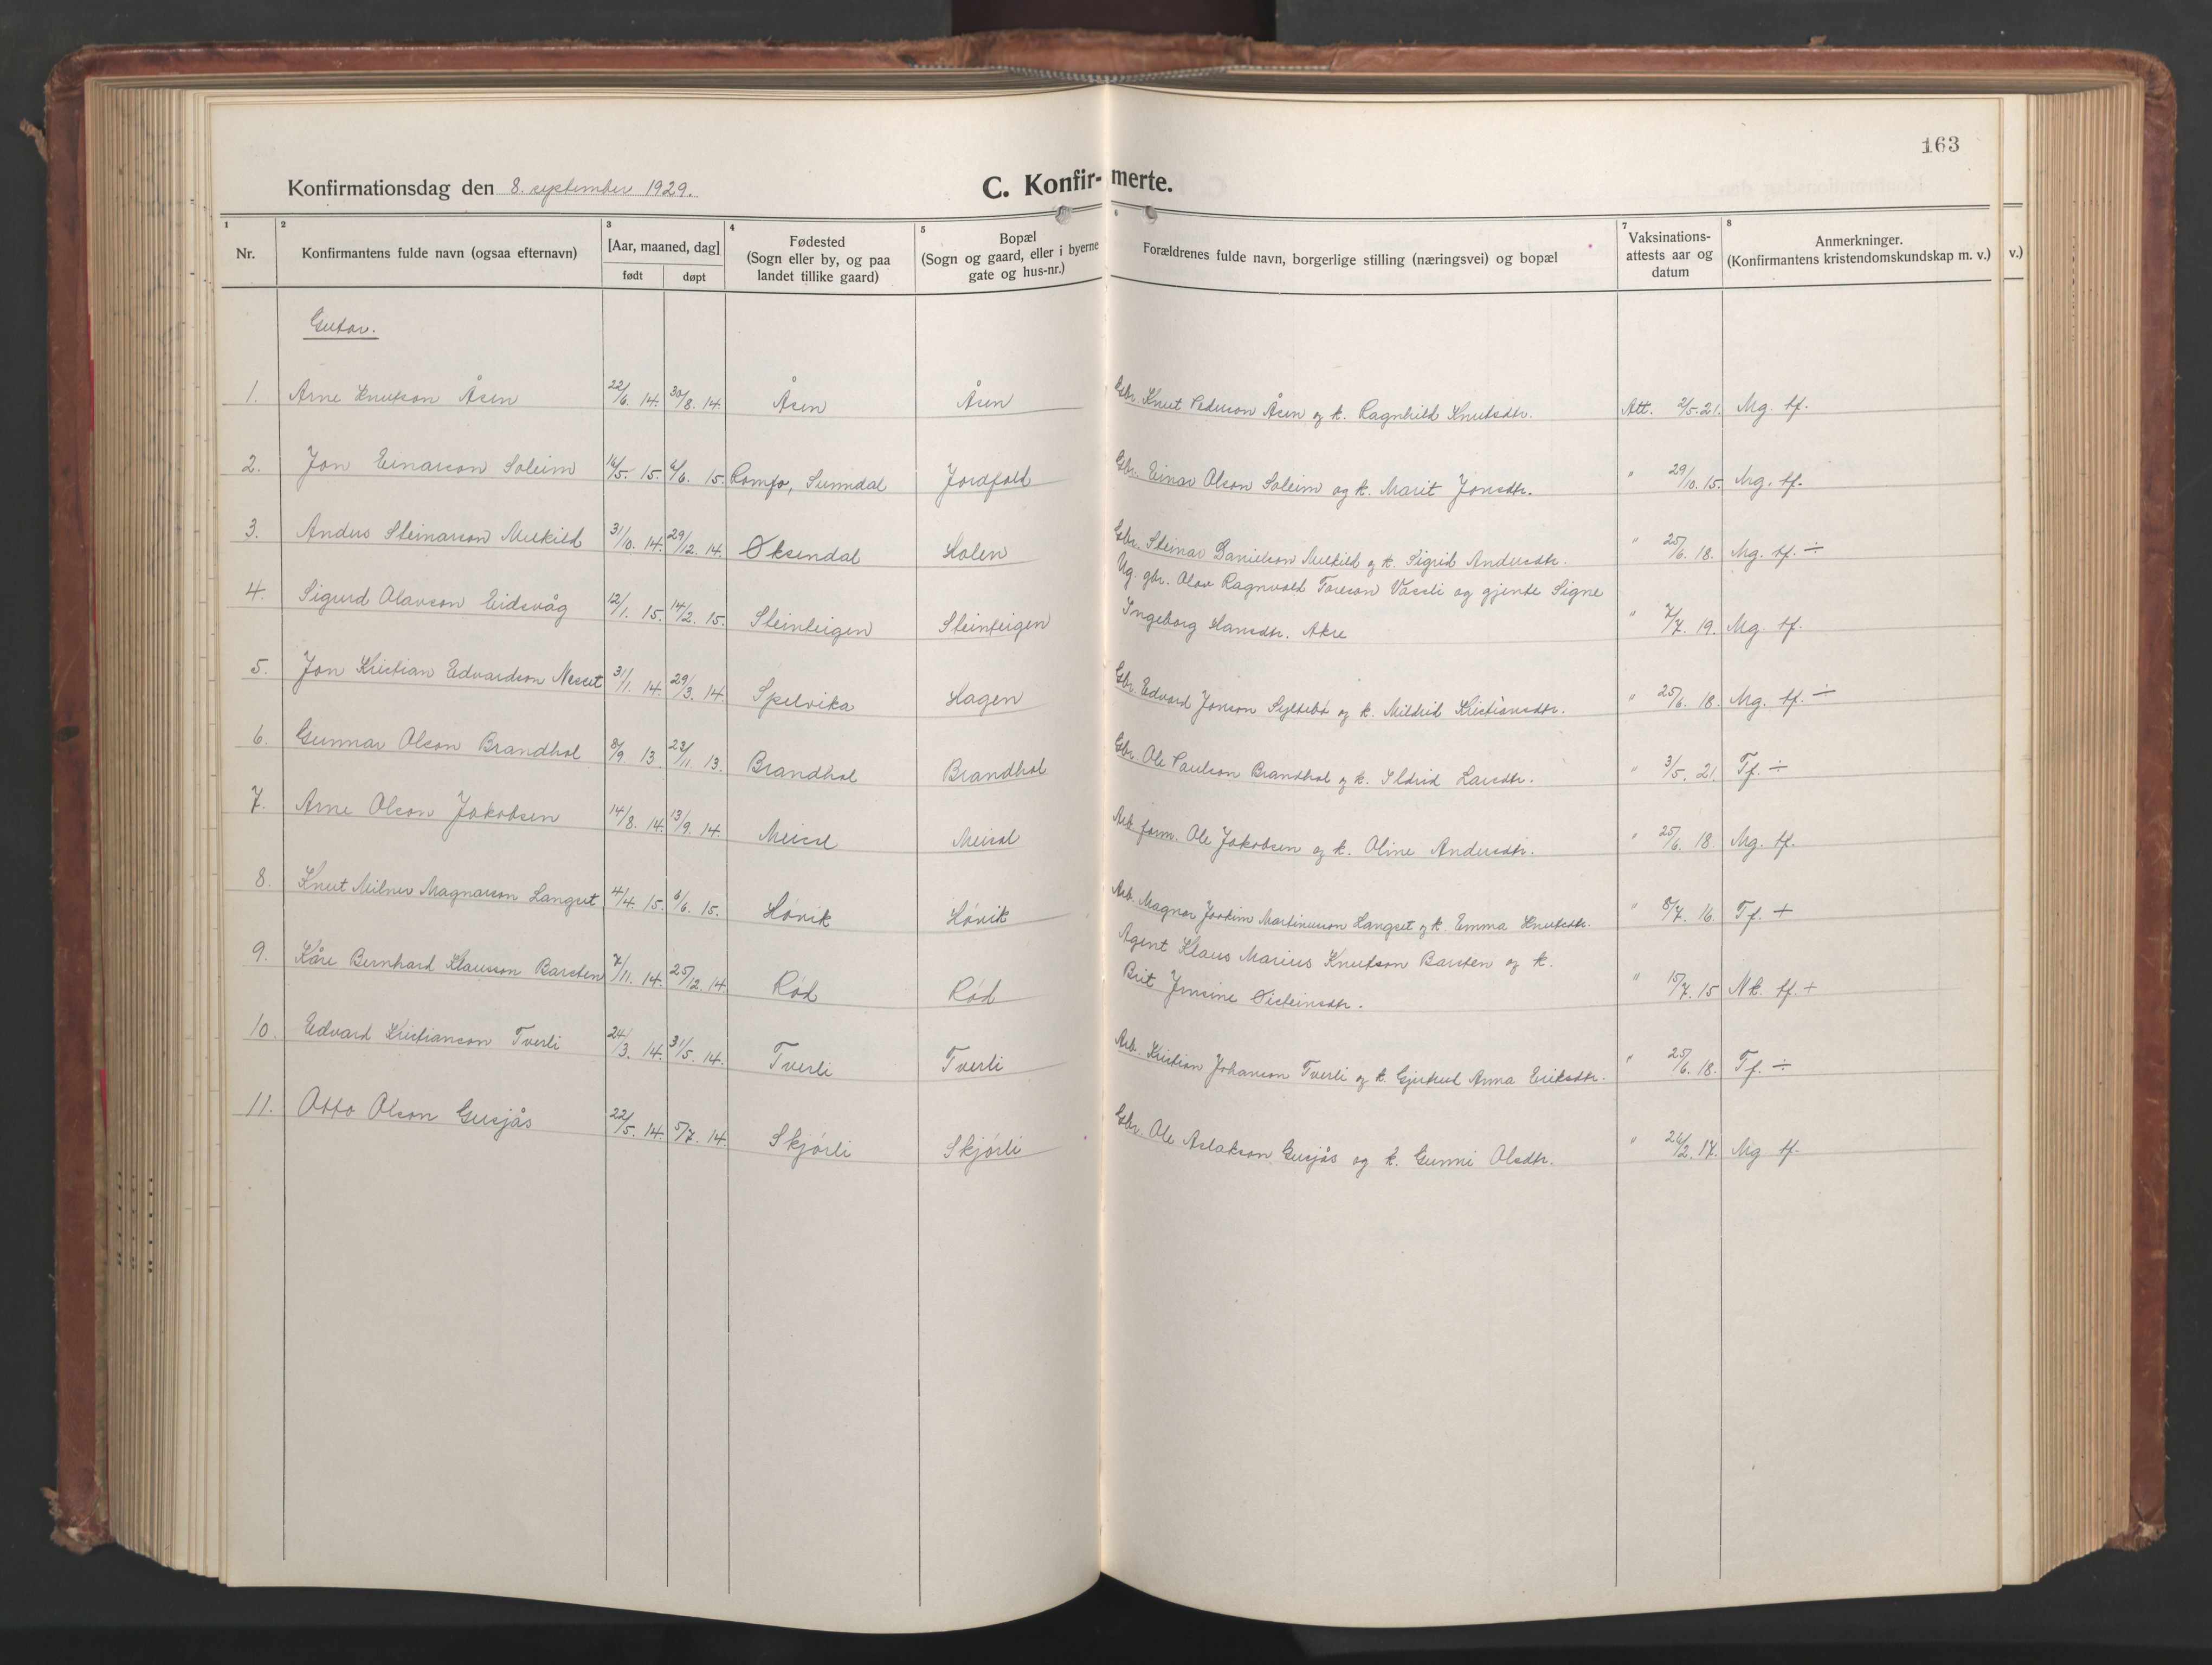 163
Konfirmationsdag den 8. september 1929.
C. Konfir-merte.
1 2 3 4 5 6 7 8
Nr. Konfirmantens fulde navn (ogsaa efternavn) [Aar, maaned, dag] født døpt Fødested (Sogn eller by, og paa landet tillike gaard) Bopæl (Sogn og gaard, eller i byerne gate og hus-nr.) Forældrenes fulde navn, borgerlige stilling (næringsvei) og bopæl Vaksinations-attests aar og datum Anmerkninger. (Konfirmantens kristendomskundskap m. v.) v.)
Gutar.
1. Arne Knutson Åsen 22/6. 14. 30/8. 14. Åsen Åsen Gbr. Knut Pederson Åsen og k. Ragnhild Knutsdtr. Att. 2/5. 21. Mg. tf.
2. Jon Einarson Soleim 16/5. 15. 6/6. 15. Romfo, Sunndal Jordfald Gbr. Einar Olson Soleim og k. Marit Jonsdtr. " 29/10. 15. Mg. tf.
3. Anders Steinarson Melkild 31/10. 14. 29/12. 14. Øksendal Holen Gbr. Steinar Danielson Melkild og k. Sigrid Andersdtr. " 25/6. 18. Mg. tf. ÷
4. Sigurd Olavson Eidsvåg 12/1. 15. 14/2. 15. Steinteigen Steinteigen Ug. gbr. Olav Ragnvald Toreson Vassli og gjente Signe
Ingeborg Hansdtr. Akre " 7/7. 19. Mg. tf.
5. Jon Kristian Edvardson Nesset 31/1. 14. 29/3. 14. Spelvika Hagen Gbr. Edvard Jonson Syltebø og k. Mildrid Kristiansdtr. " 25/6. 18. Mg. tf. ÷
6. Gunnar Olson Brandhol 8/9. 13. 23/11. 13. Brandhol Brandhol Gbr. Ole Paulson Brandhol og k. Ildrid Larsdtr. " 3/5. 21. Tf. ÷
7. Arne Olson Jakobsen 14/8. 14. 13/9. 14. Meisal Meisal Arb. form. Ole Jakobsen og k. Oline Andersdtr. " 25/6. 18. Mg. tf.
8. Knut Milner Magnarson Langset 4/4. 15. 6/6. 15. Høvik Høvik Arb. Magnar Joakim Martinusson Langset og k. Emma Knutsdtr. " 8/7. 16. Tf. +
9. Kåre Bernhard Klausson Barsten 7/11. 14. 25/12. 14. Rød Rød Agent Klaus Marius Knutson Barsten og k.
Brit Jensine Øisteinsdtr. " 15/7. 15 Nk. tf. +
10. Edvard Kristianson Tverli 24/3. 14. 31/5. 14. Tverli Tverli Arb. Kristian Johanson Tverli og k. Gjertrud Anna Eriksdtr. " 25/6. 18. Tf. ÷
11. Otto Olson Gusjås 22/5. 14. 5/7. 14. Skjørli Skjørli Gbr. Ole Aslakson Gusjås og k. Gunni Olsdtr. " 26/2. 17. Mg tf.